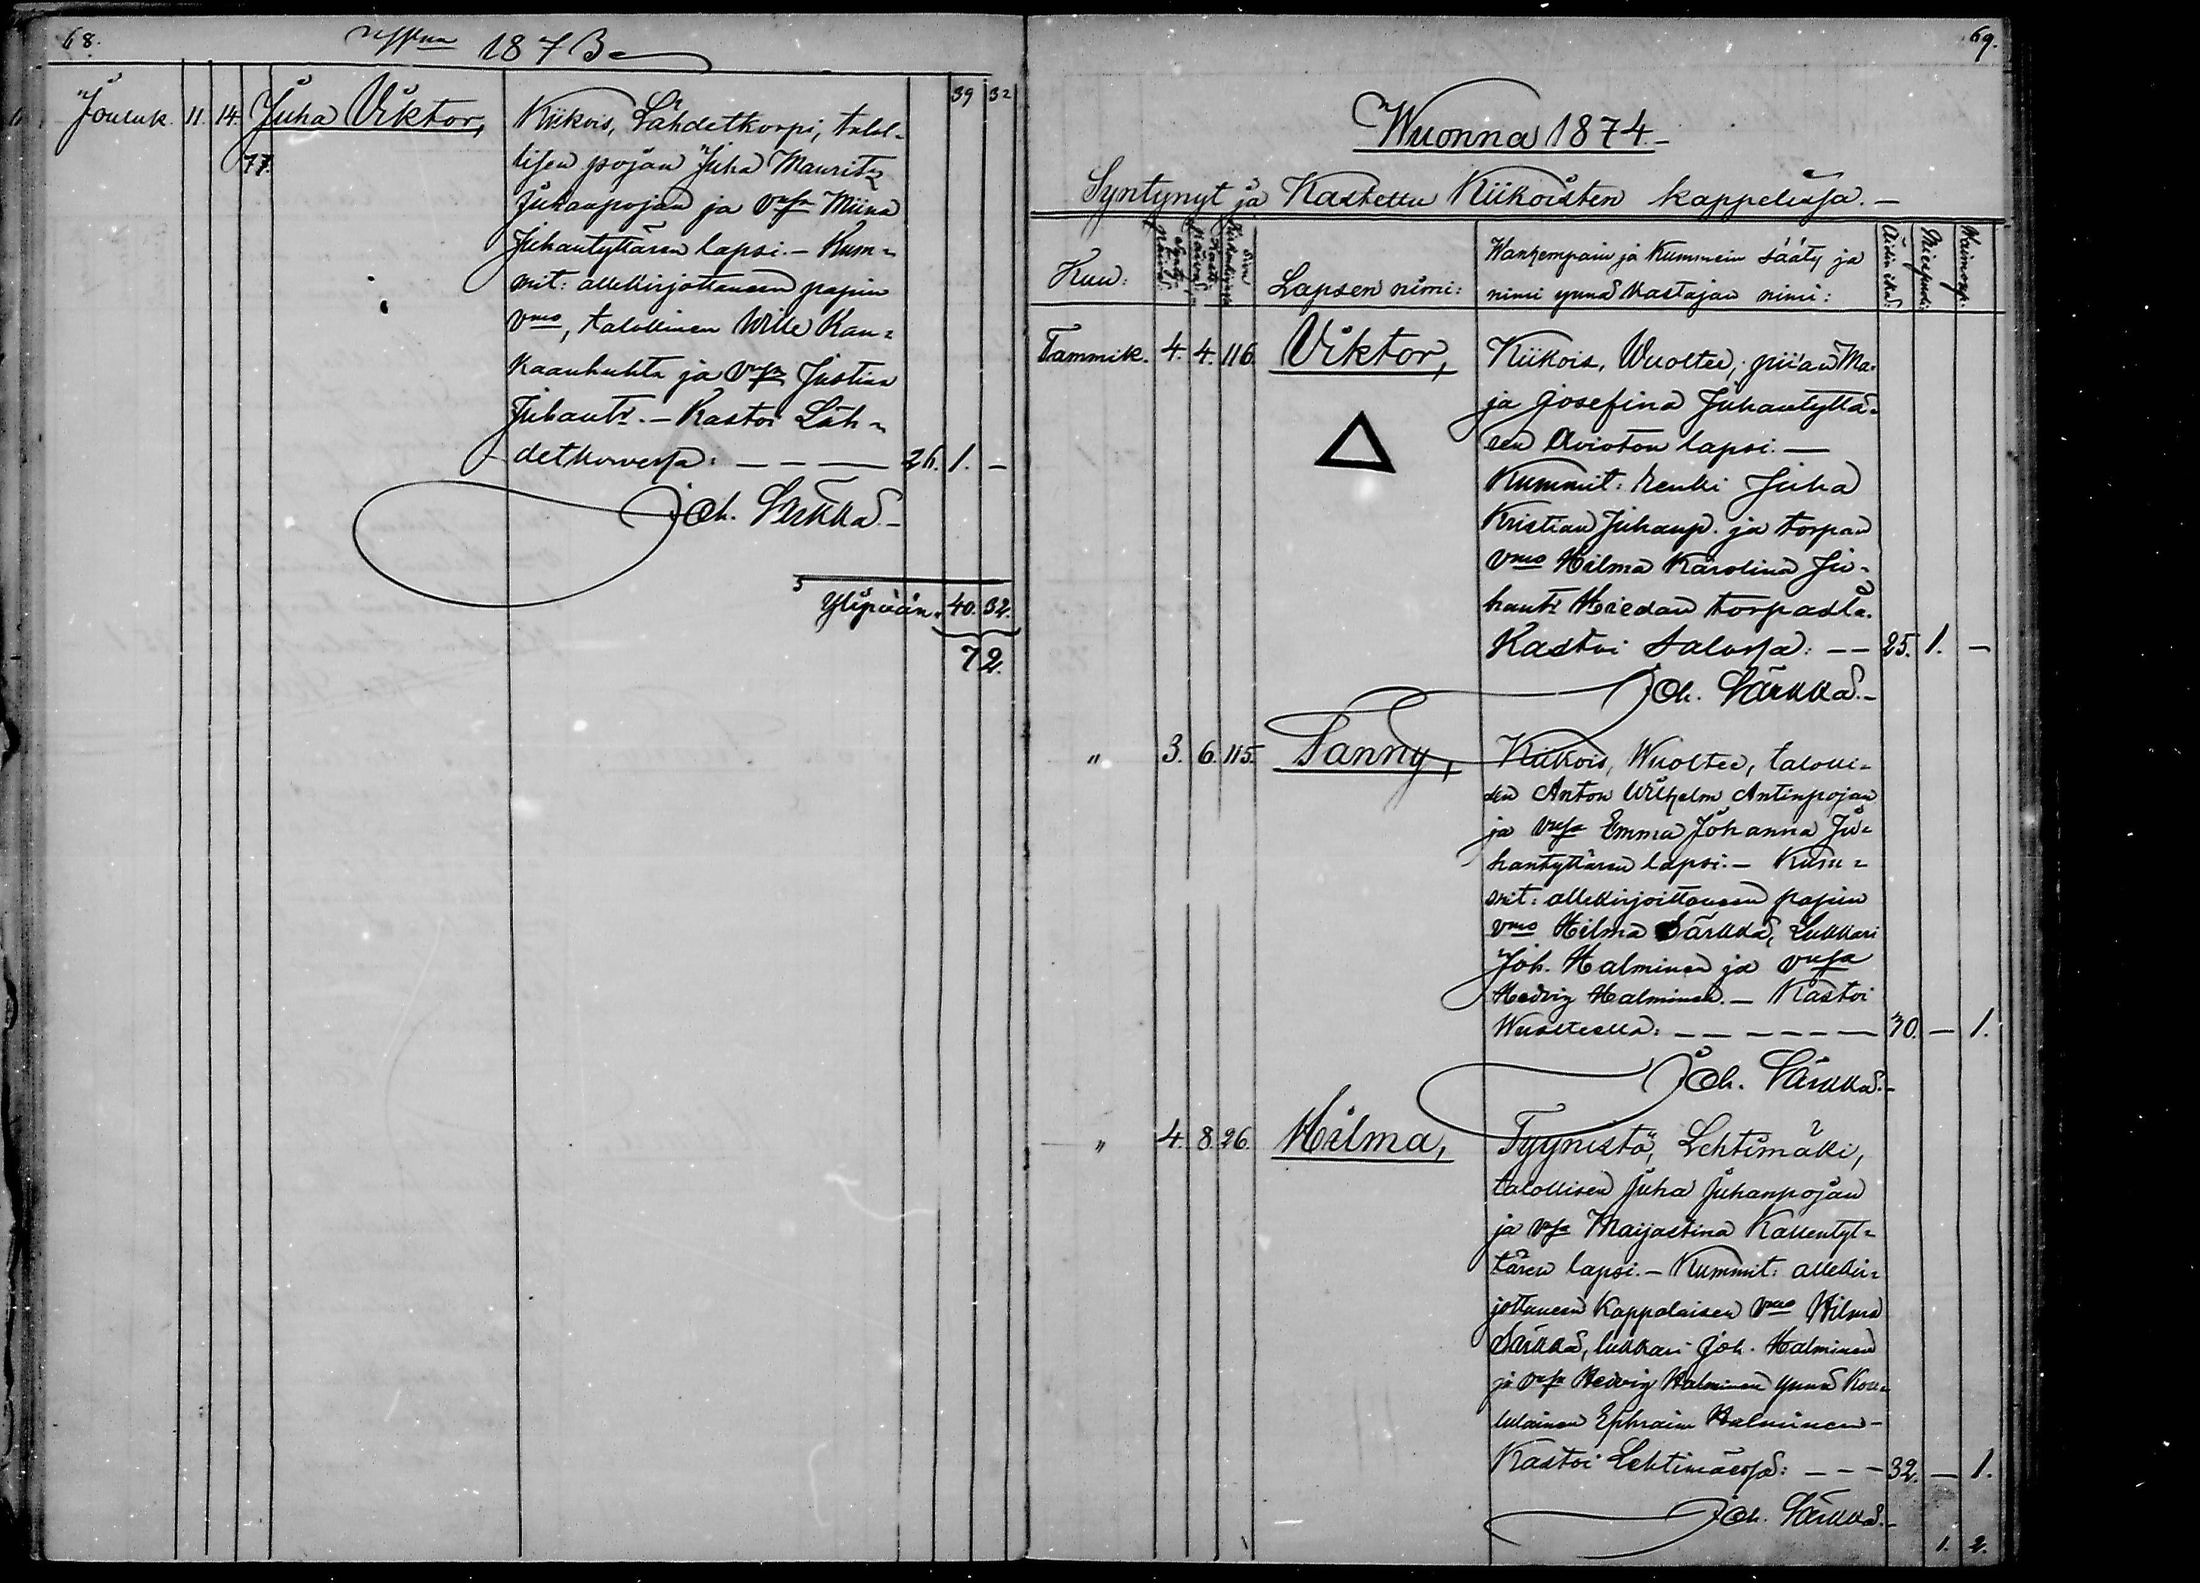 68.
1873
39 32
Jouluk. 11. 14. Juha Viktor, Kiikois, Lähdetkorpi, talol-
77. lisen pojan Juha Mauritz
Juhanpojan ja vmsa Miina
Juhantyttären lapsi. – Kum-
mit: allekirjottaneen papin
vmo, talollinen Wille Kan-
kaanhuhta ja vmsa Justina
Juhantr. – Kastoi Läh-
detkorvessa: — — — 26. 1. –
Joh. Särkkä. –
Ylipään. 40. 32.
72.
69.
Wuonna 1874. –
Syntynyt ja Kastettu Kiikoisten kappelissa. –
Kuu: Synty- Päivä Kaste- Päivä Sivu Lapsen nimi: Wanhempain ja Kummein sääty ja Äidin ikä: Miespuoli: Waimop.
nimi ynnä Kastajan nimi:
Tammik. 4. 4. 116. Viktor, Kiikois, Wuoltee, piian Ma-
ja Josefina Juhantyttä-
ren Avioton lapsi. —
Kummit: Renki Juha
Kristian Juhanp. ja torpan
vmo Hilma Karolina Ju-
hantr Hiedan torpasta.
Kastoi talossa: — — 25. 1. –
Joh. Särkkä. –
" 3. 6. 115. Fanny, Kiikois, Wuoltee, talolli-
sen Anton Wilhelm Antinpojan
ja vmsa Emma Johanna Ju-
hantyttären lapsi. – Kum-
mit: allekirjoittaneen papin
vmo Hilma Särkkä, Lukkari
Joh. Halminen ja vmsa
Hedvig Halminen. – Kastoi
Wuolteella: — — — — — 30. – 1.
Joh. Särkkä. –
" 4. 8. 26. Hilma, Tyynistö, Lehtimäki,
talollisen Juha Juhanpojan
ja vmsa Maijastina Kallentyt-
tären lapsi. – Kummit: allekir-
jottaneen Kappalaisen vmo Hilma
Särkkä, lukkari Joh. Halminen
ja vmsa Hedvig Halminen ynnä Kou-
lulainen Ephraim Halminen –
Kastoi Lehtimäessä: — — – 32. – 1.
Joh. Särkkä. –
1. 2.